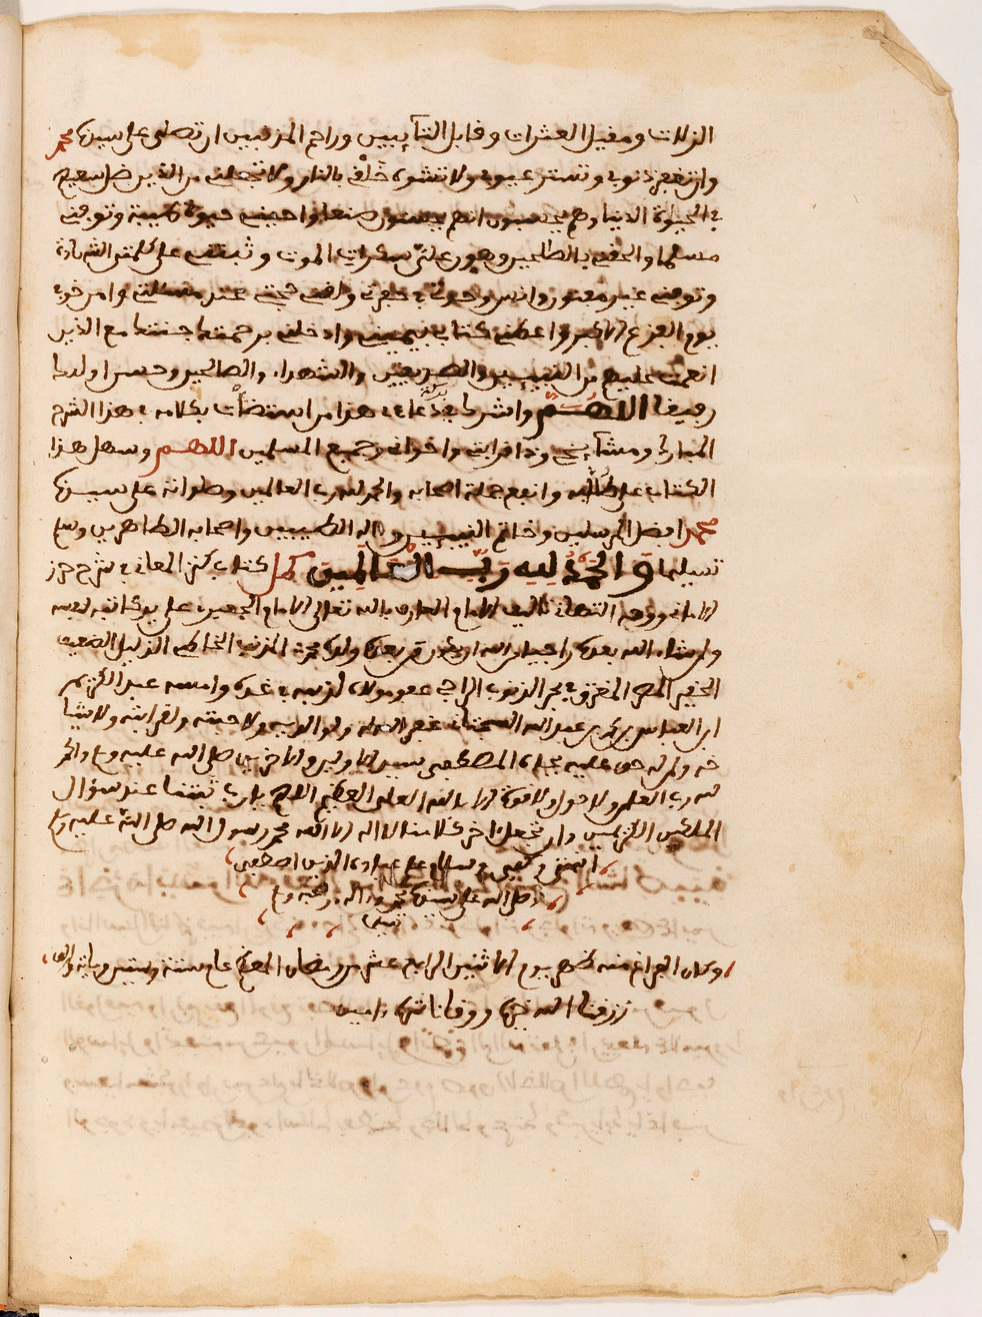 الزلات ومقيل العثرات وقابل التآئبين وراحم المذنبين ان تصلي على سيدنا محمد
وان تغفر ذنوبي وتستر عيوبي ولا تشوي خلقي بالنار ولا تجعلني من الذين ضل سعيهم
في الحيوة الدنيا وهم يحسبون انهم يحسنون صنعا واحيني حيوة طيبة وتوفني
مسلما والحقني بالصالحين وهون علي سكرات الموت وثبتني على كلمتي الشهادة
وتوفني غير مفتون وانس وحدتي ولقني حجتي عند وامن خوفي
يوم الفزع الاكبر واعطني كتابي بيميني وادخلني برحمتك جنتك مع الذين
انعمت عليهم من النبيين والصديقين والشهداء والصالحين وحسن اولئك
رفيقا اللهم واشرك في هذا من بكلامه في هذا الشرح
المبارك ومشآئخي وذا قرابتي واخواني وجميع المسلمين اللهم وسهل هذا
الكتاب على وانفع به اصحابه والحمد لله رب العالمين وصلواته على سيدنا
محمد افضل المرسلين وخاتم النبيين وءاله الطيبين واصحابه الطاهرين وسلم
تسليما والحمد لله رب العالمين كمل كتاب كنز المعاني في شرح حرز
الاماني ووجه التهاني تأليف الامام العارف بالله تعالى الامام الجعبري على يد كاتبه لنفسه
ولمن شاء الله بعده المذنب الخاطئ الذليل الضعيف
الحقير في بحر الذنوب الراجي عفو مولاه لذنبه في غده وامسه عبد الكريم
ابن العباس بن عبد الله غفر الله له ولوالديه ولاحبته واقرابته ولاشيا
خه ولمن له حق عليه بجاه المصطفى سيد الاولين والاخرين صلى الله عليه وسلم والحمد
لله رب العلمين ولا حول ولا قوة الا بالله العلي العظيم اللهم يا رب ثبتنا عند سؤال
الملكين الكريمين وان تجعل ءاخر كلامنا لا اله الا الله محمد رسول الله صلى الله عليه وسلم
ءامين وكفى وسلام على عباده الذين اصطفى
صلى الله على سيدنا محمد وءاله وصحبه وسلم
وكان الفراغ منه يوم الاثنين الرابع عشر من رمضان المعظم عام ستة وستين ومائة والف
رزقنا الله خيره ووقانا شره ءامين